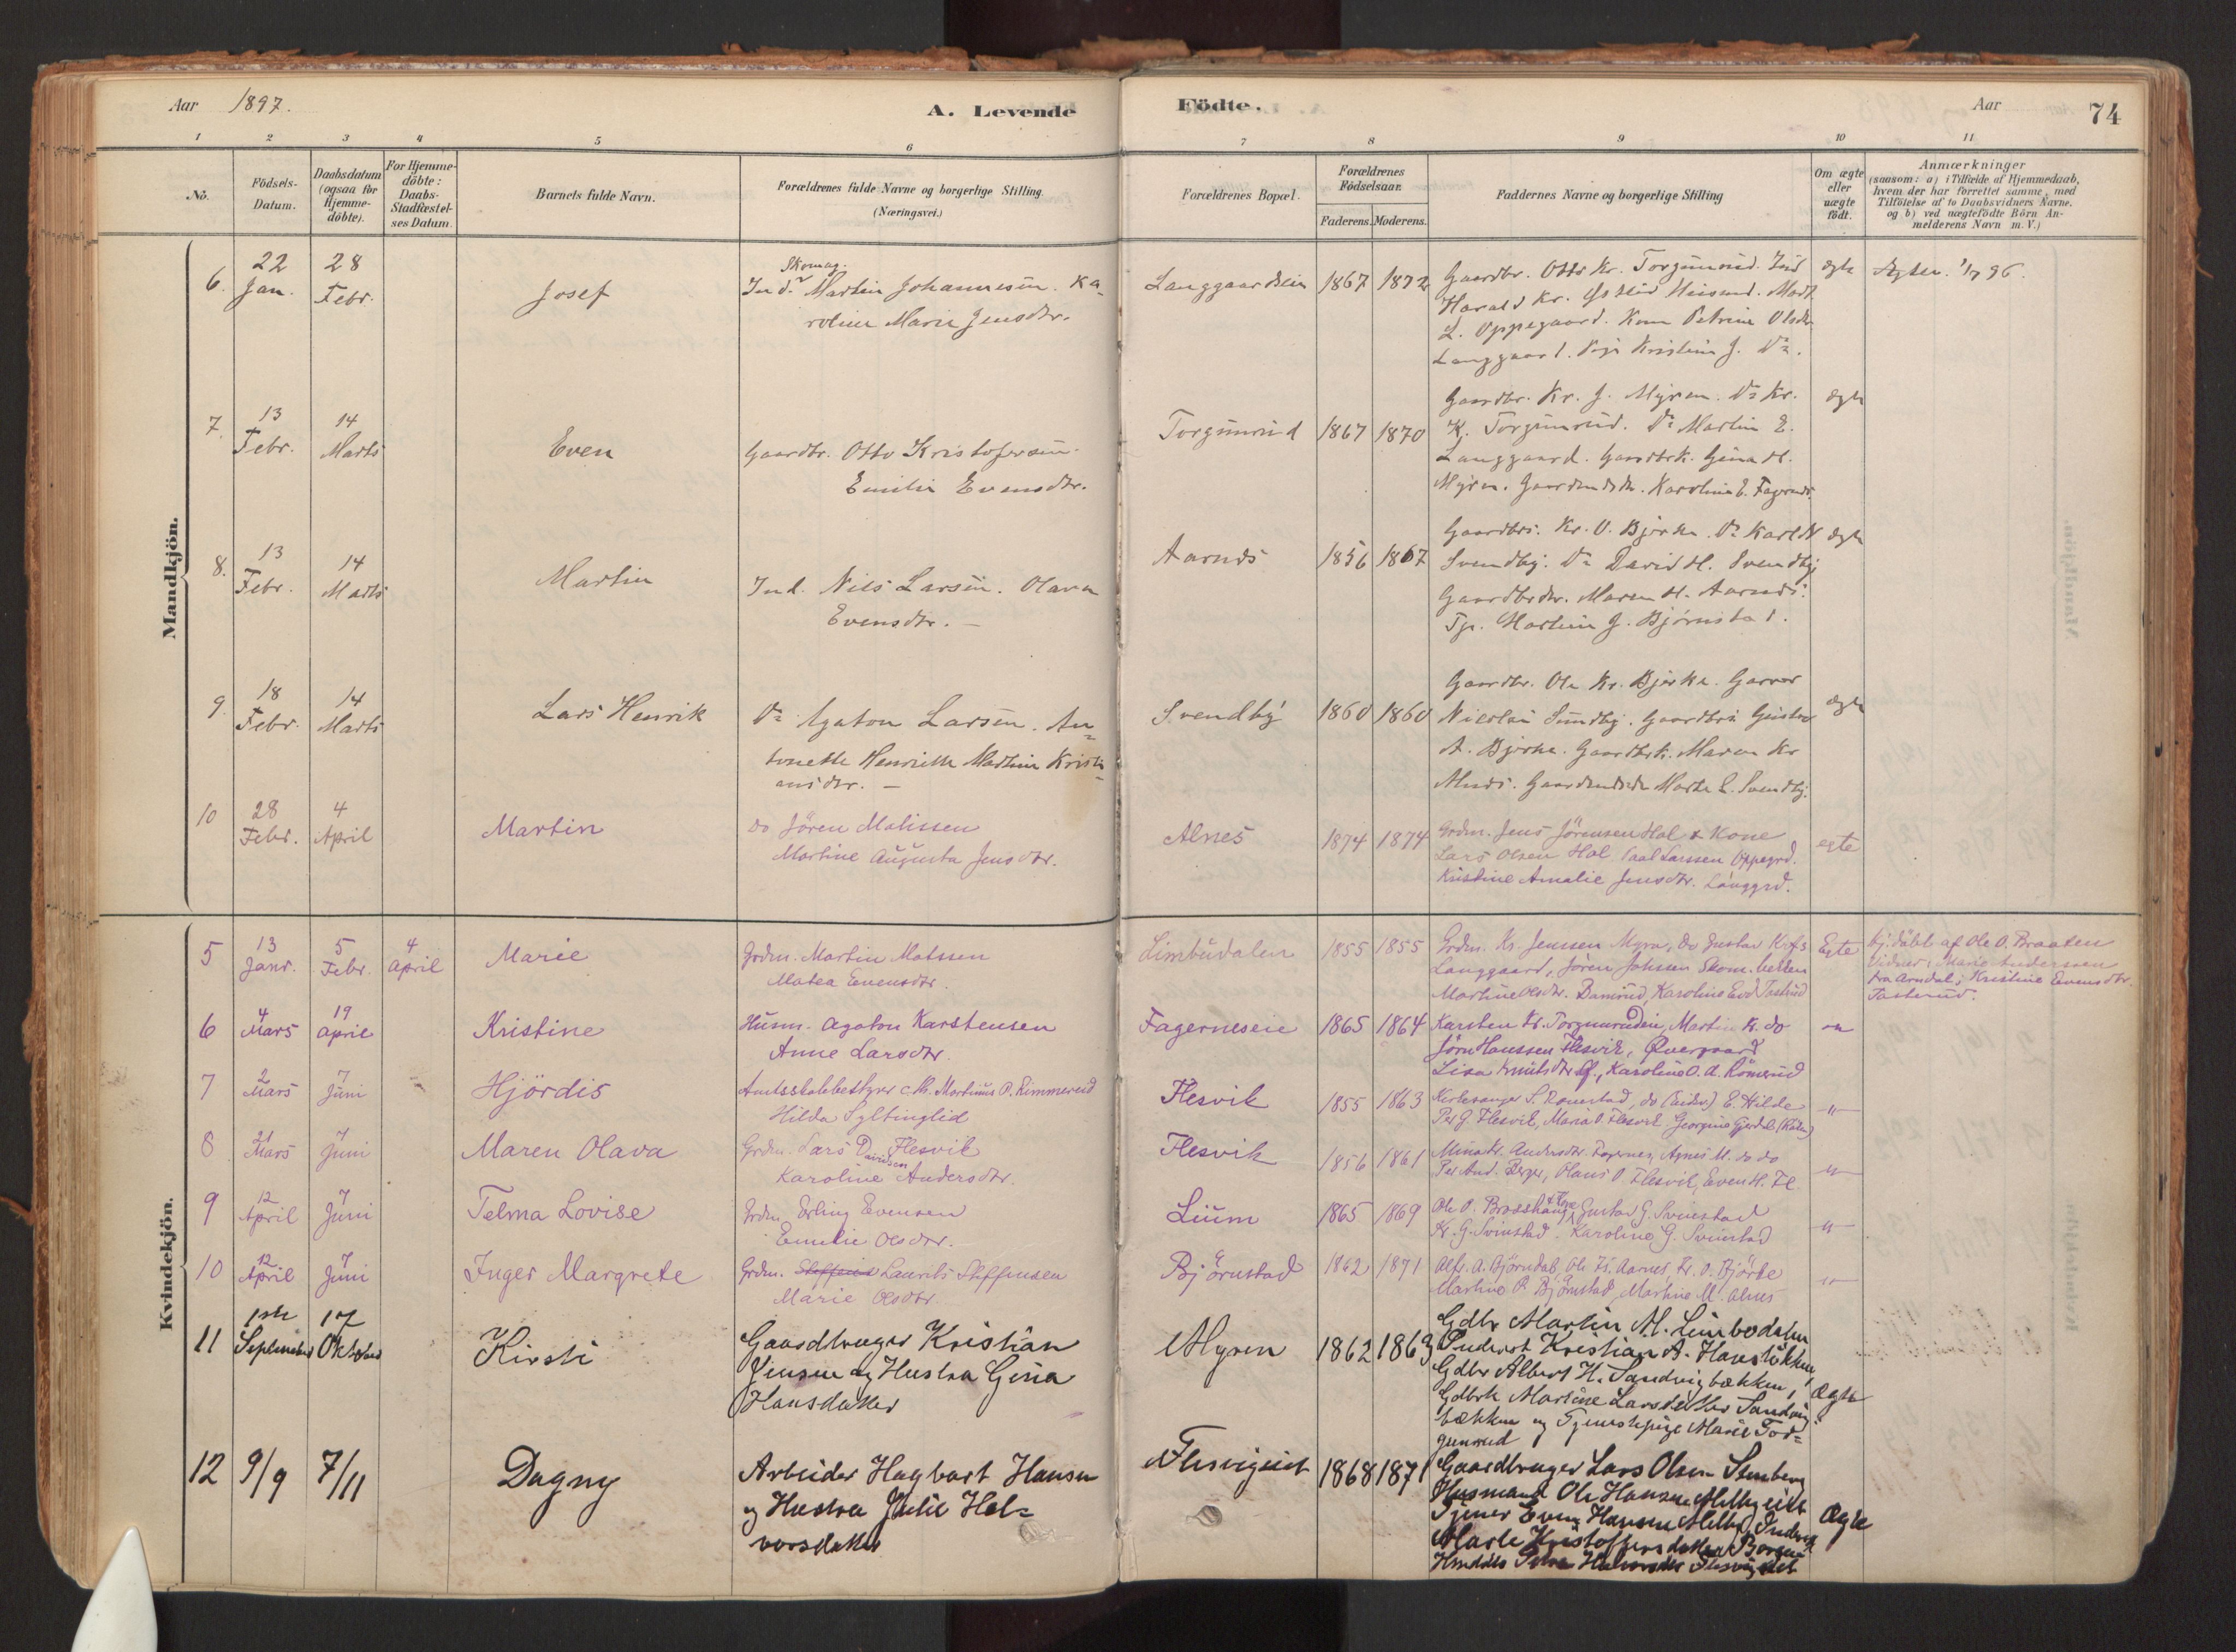 Aar 1897.
A. Levende
Födte.
Aar
74
1
2
3
4
5
6
7
8
9
10
11
No.
Födsels-
Datum.
Daabsdatum
(ogsaa for
hjemme-
döbte).
For Hjemme-
döbte:
Daabs-
Stadfæstel-
ses Datum.
Barnets fulde Navn.
Forældrenes fulde Navne og borgerlige Stilling.
(Næringsvei.)
Forældrenes Bopæl.
Forældrenes
Födselsaar.
Faderens. Moderens.
Faddernes Navne og borgerlige Stilling
Om ægte
eller
uægte
födt.
Anmærkninger
(saasom: a) i Tilfælde af Hjemmedaab,
hvem der har forrettet samme, med
Tilföielse af to Daabsvidners Navne,
og b) ved uægtefödte Börn An-
melderens Navn m. V.)
Mandkjön.
6. 22 Jan. 28 Febr. Josef
Skomag.
Ind. Martin Johannesen. Ka-
roline Marie Jensdtr.
Langgaardseie 1867 1872
Gaardbr. Otto Kr. Torgunrud. Ind
Harald Kr.
L. Oppegaard. Kone Petrine Olsdtr
Langgaard. Pige Kristine J. Do.
ægte
7. 13 Febr. 14 Marts Even
Gaardbr. Otto Kristofersen.
Emilie Evensdtr.
Torgunrud 1867 1870
Gaardbr. Kr. J. Myren. Do Kr.
K. Torgunrud. Do Martin E.
Langgaard. Gaardbrk. Gina H.
Myren. Karoline E. Fagernes.
ægte
8. 13 Febr. 14 Marts Martin
Ind. Nils Larsen. Olava
Evensdtr. —
Aarnes 1856 1867
Gaardbr. Kr. O. Bjerke. Do Karl N
Svendby. Do David H. Svendby
Gaardbrdtr. Maren H. Aarnes.
Tje. Martine J. Björnstad.
ægte
9. 18 Febr. 14 Marts Lars Henrik
Do Agaton Larsen. An-
tonette Henriette Mathine Kristi-
ansdtr. —
Svendby 1860 1860
Gaardbr. Ole Kr. Bjerke. Garver
Nicolai Sundby. Gaardbr. Gustav
A. Bjerke. Gaardbrk. Maren Kr
Alnes. Marte L. Svendby.
ægte
10 28 Febr. 4 April Martin
do Jören Matissen
Martine Augusta Jensdtr.
Alnes 1874 1874
Grdm. Jens Jörensen Hol & Kone
Lars Olsen Hol Paal Larssen Oppegrd.
Kristine Amalie Jensdtr. Langgrd.
egte
Kvindekjön.
5 13 Janr. 5 Febr. 4 April Marie
Grdm. Martin Matssen
Matea Evensdtr.
Limbudalen 1855 1855
Grdm. Kr. Jenssen Myra, do Gustav Krfs
Langgaard, Jören Johssen Skom.bekken
Martine Olsdtr. Ramsrud, Karoline Evd Tostrud
Egte
hj.döbt af Ole O. Braaten
Vidner: Marie Anderssen
fra Arndal, Kristine Evensdtr.
Tosterud.
6 4 Mars 19 April Kristine
Husm. Agaton Karstensen
Anne Larsdtr.
Fagerneseie 1865 1864
Karsten Kr. Torgunrudeie, Martin K. do
Jörn Hanssen Flesvik, Övergaard
Karoline O. A. Römerud
7 2 Mars 7 Juni Hjördis
Amtsskolebestyrer c. M. Martinus P. Rimmereid
Hilda Syltinglid
Flesvik 1855 1863
Kirkesanger S. Ronestad, do E. Hilde
Per J. Flesvik, Maria O. Flesvik Georgine Gjerdal
"
8 21 Mars 7 Juni Maren Olava
Grdm. Lars Davidsen Flesvik
Karoline Andersdtr.
Flesvik 1856 1861
Mina Kr. Andersdtr. Fagernes, Agnes M. do do
Per And. Berger, Olaus O. Flesvik, Even H. Fl.
"
9 12 April 7 Juni Telma Lovise
Grdm. Erling Evensen
Emilie Olsdtr.
Lium 1865 1869
Ole O. Brosshaug & Kone, Gustav G. Svinestad
Kr. G. Svinstad. Karoline G. Svinstad
"
10 12 April 7 Juni Inger Margrete
Grdm. Laurits Steffensen
Marie Olsdtr.
Björnstad 1862 1871
Alfr. A. Björndal, Ole Kr. Aarnes, Kr. O. Björke
Martine P. Björnstad, Martine M. Alnes
"
11 1ste September 17 Oktober Kirsti
Gaardbruger Kristian
Jensen og Hustru Gina
Hansdatter
Myren 1862 1863
Gdbr Martin M. Limbodalen,
Inderst Kristian A. Hanslökken,
Gdbr Albert H. Sandvigbækken,
Gdbrk Martine Larsdatter Sandvig-
bækken og Tjenestepige Marie Tor-
gunrud
Ægte
12 9/9 7/11 Dagny
Arbeider Hagbart Hansen
og Hustru Julie Hal-
vorsdatter
Flesvigeiet 1868 1871
Gaardbruger Lars Olsen Stenberg
Husmand Ole Hansen Melbyeiet
Tjener Even Hansen Melby
Marte Kristoffersdatter
Flesvigeiet
Ægte